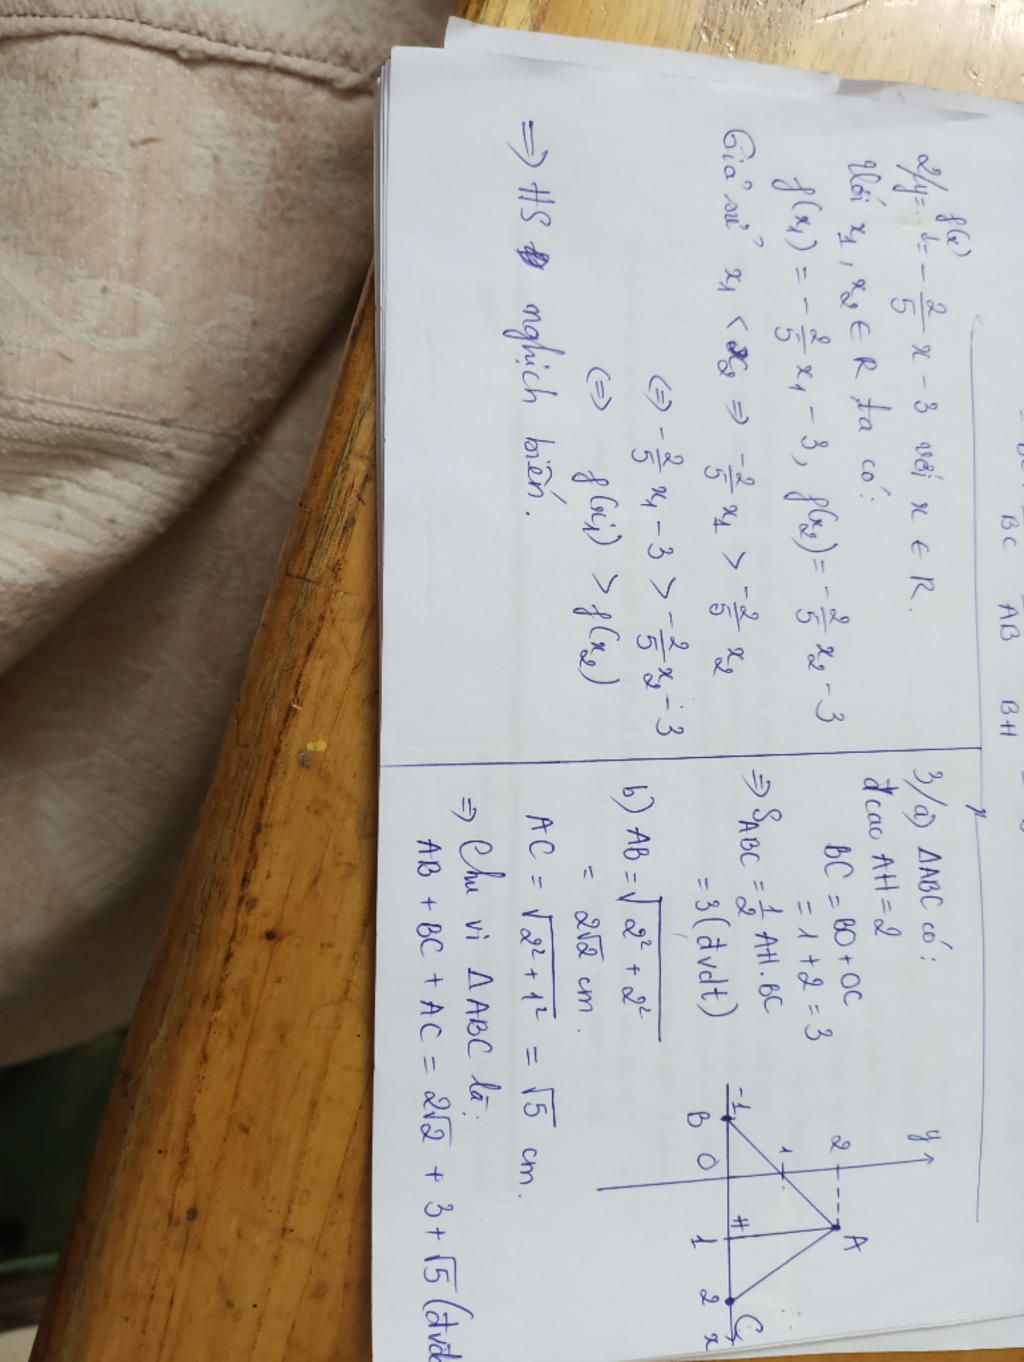 BC AB BH
2/ y = f(x) = -2/5 x - 3 với x ∈ R.
Với x₁, x₂ ∈ R, ta có:
f(x₁) = -2/5 x₁ - 3, f(x₂) = -2/5 x₂ - 3
Giả sử x₁ < x₂ => -2/5 x₁ > -2/5 x₂
(=) -2/5 x₁ - 3 > -2/5 x₂ - 3
(=) f(x₁) > f(x₂)
=> HS nghịch biến.
3/ a) ΔABC có:
đcao AH = 2
BC = BO + OC
= 1 + 2 = 3
=> S_ABC = 1/2 AH.BC
= 3 (đvdt)
b) AB = √(2² + 2²)
= 2√2 cm.
AC = √(2² + 1²) = √5 cm.
=> Chu vi ΔABC là:
AB + BC + AC = 2√2 + 3 + √5 (đvđ
y
2 A
1
-1 O H 1 2 x
B C